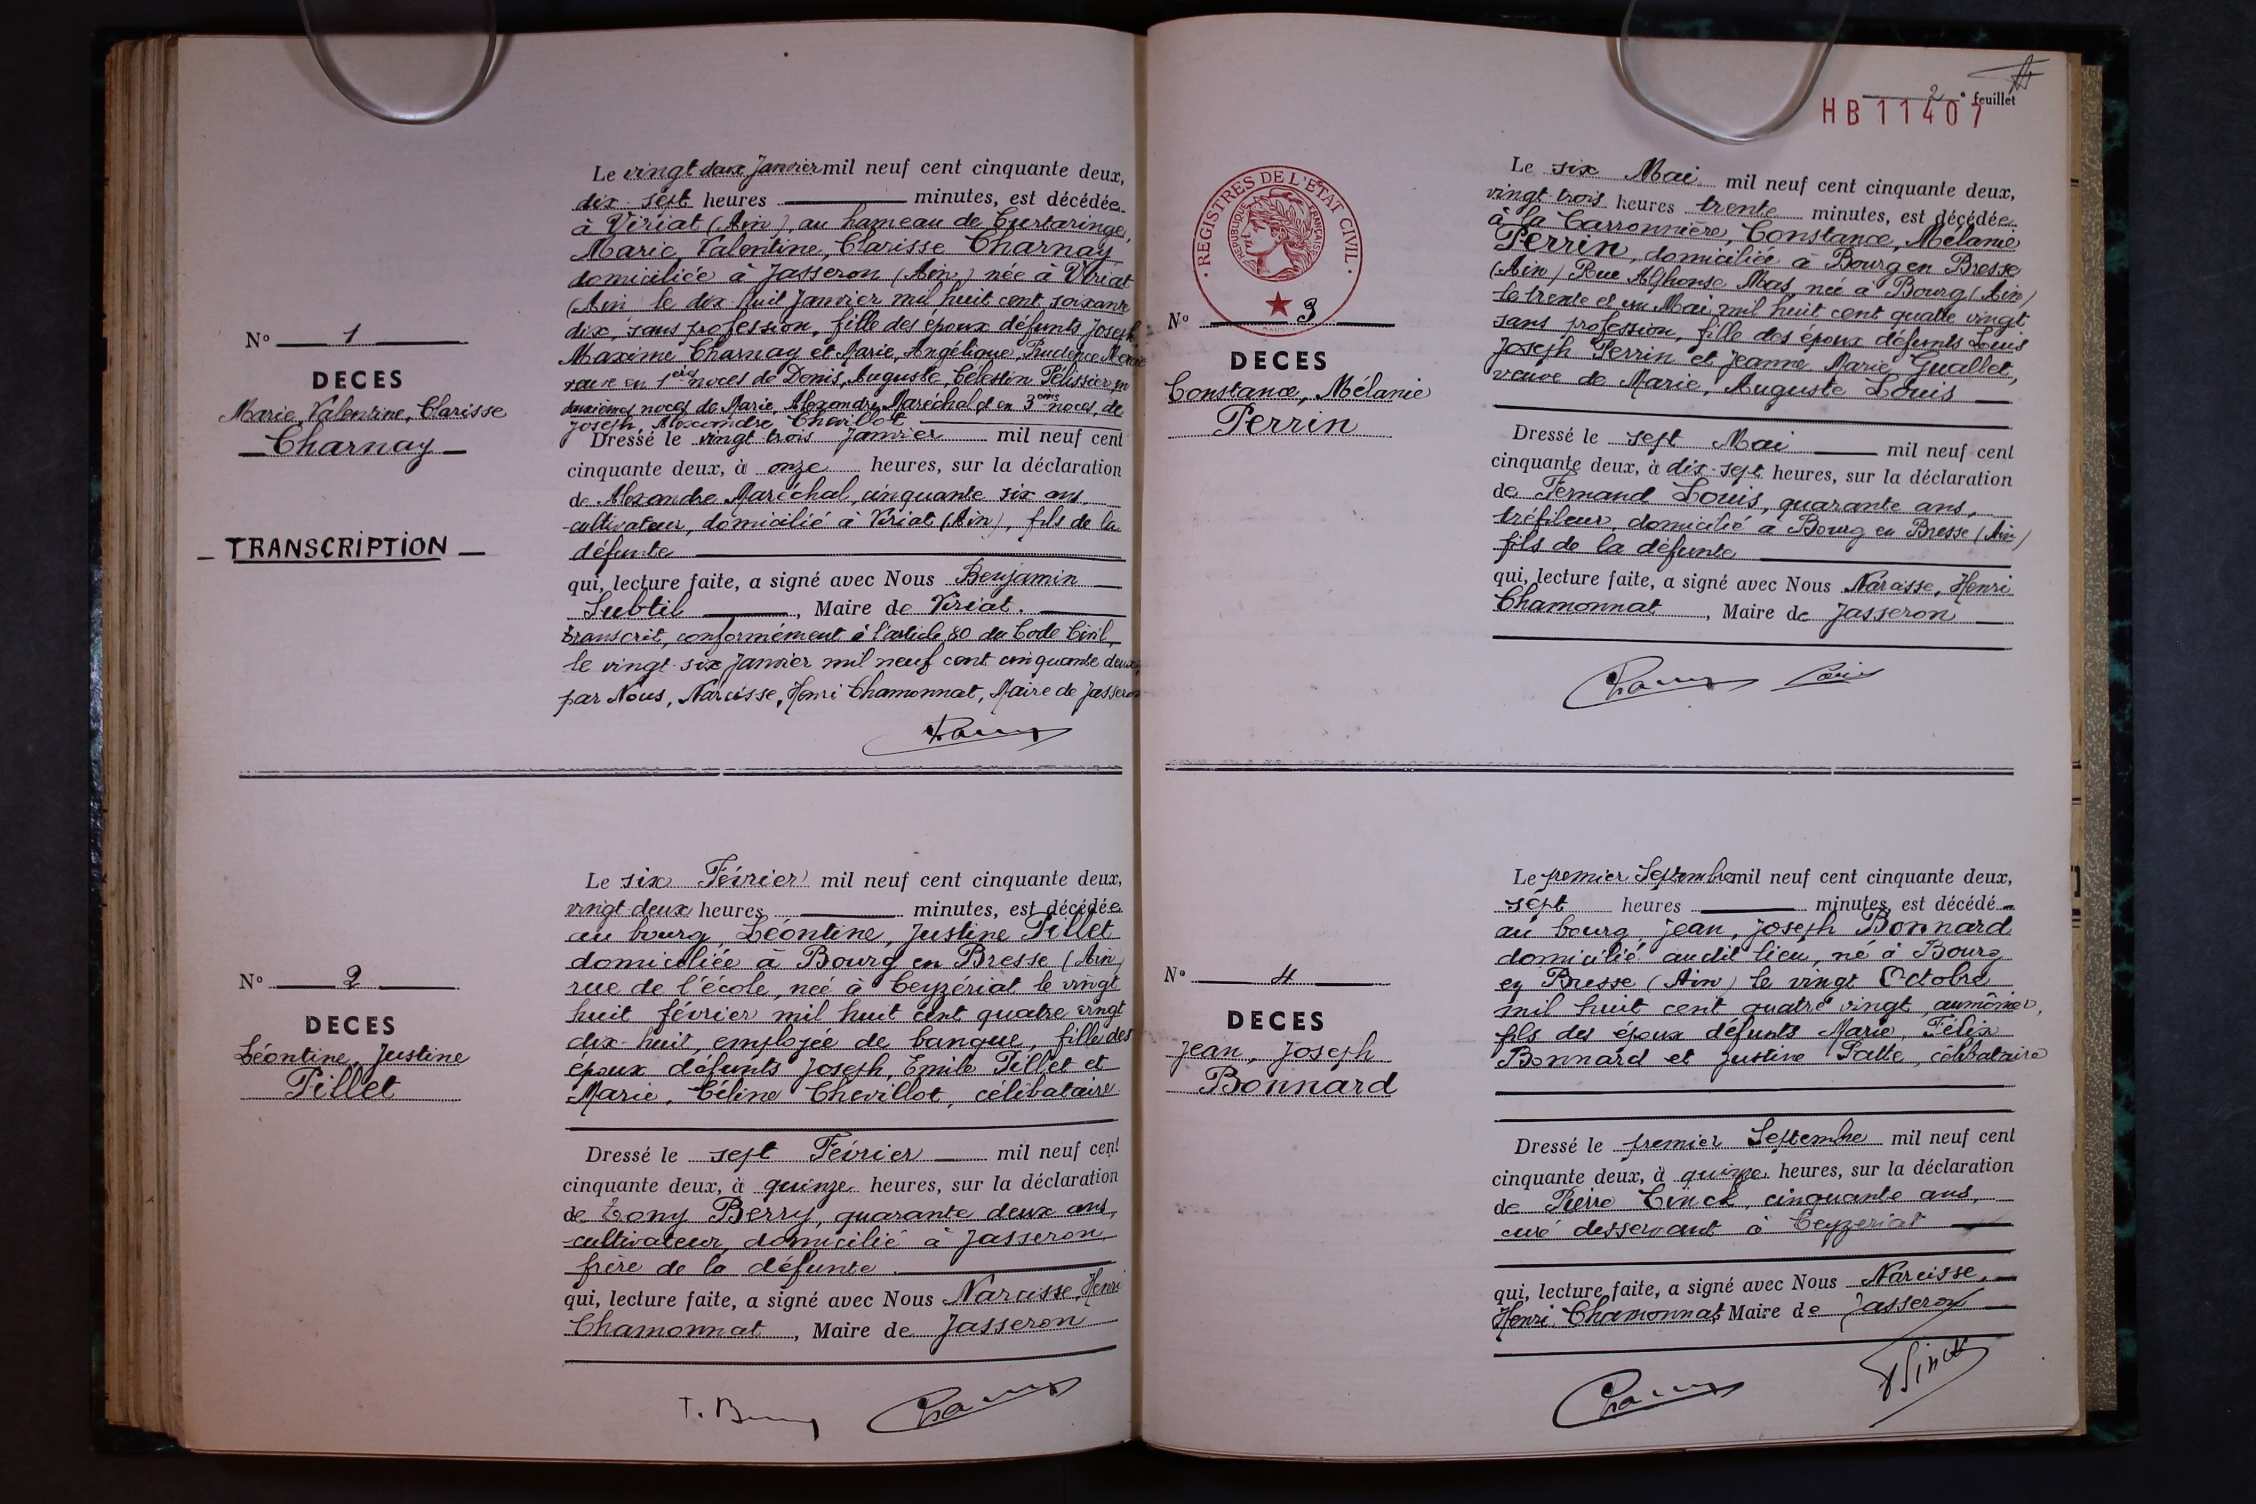 Le vingt deux Janvier mil neuf cent cinquante deux,
dix sept heures minutes, est décédée
à Viriat (Ain), au hameau de Curtaringe,
Marie, Valentine, Clarisse Charnay
domiciliée à Jasseron (Ain) née à Viriat
(Ain le dix huit Janvier mil huit cent soixante
dix, sans profession, fille des époux défunts Joseph
Maxime Charnay et Marie, Angélique, Prudence
veuve en 1ères noces de Denis, Auguste, Célestin Pélissier en
deuxièmes noces de Marie, Alexandre Maréchal et en 3èmes noces, de
Joseph, Alexandre Chevillot
N° 1
DECES
Marie, Valentine, Clarisse
Charnay
TRANSCRIPTION
Dressé le vingt trois Janvier mil neuf cent
cinquante deux, à onze heures, sur la déclaration
de Alexandre Maréchal, cinquante six ans
cultivateur, domicilié à Viriat (Ain), fils de la
défunte
qui, lecture faite, a signé avec Nous Benjamin
Subtil, Maire de Viriat.
transcrit, conformément à l'article 80 du Code Civil,
le vingt-six Janvier mil neuf cent cinquante deux,
par Nous, Narcisse, Henri Chamonnat, Maire de Jasseron
Le six Février mil neuf cent cinquante deux,
vingt deux heures minutes, est décédée
au bourg, Léontine, Justine Pillet
domiciliée à Bourg en Bresse (Ain)
rue de l'école, née à Ceyzériat le vingt
huit février mil huit cent quatre vingt
dix-huit, employée de banque, fille des
époux défunts Joseph, Emile Pillet et
Marie, Céline Chevillot, célibataire
N° 2
DECES
Léontine, Justine
Pillet
Dressé le sept Février mil neuf cent
cinquante deux, à quinze heures, sur la déclaration
de Tony Berry, quarante deux ans,
cultivateur, domicilié à Jasseron,
frère de la défunte.
qui, lecture faite, a signé avec Nous Narcisse, Henri
Chamonnat, Maire de Jasseron
T. Berry
2e feuillet
HB 11407
REGISTRES DE L'ETAT CIVIL
REPUBLIQUE FRANÇAISE
N° 3
DECES
Constance, Mélanie
Perrin
Le six Mai mil neuf cent cinquante deux,
vingt trois heures trente minutes, est décédée
à la Carronnière, Constance, Mélanie
Perrin, domiciliée à Bourg en Bresse
(Ain) Rue Alphonse Mas, née à Bourg (Ain)
le trente et un Mai mil huit cent quatre vingt
sans profession, fille des époux défunts Louis
Joseph Perrin et Jeanne Marie, Guallet,
veuve de Marie, Auguste Louis
Dressé le sept Mai mil neuf cent
cinquante deux, à dix-sept heures, sur la déclaration
de Fernand Louis, quarante ans,
tréfileur, domicilié à Bourg en Bresse (Ain)
fils de la défunte
qui, lecture faite, a signé avec Nous Narcisse, Henri
Chamonnat, Maire de Jasseron
Louis
Le premier Septembre mil neuf cent cinquante deux,
sept heures minutes, est décédé
au bourg, Jean, Joseph Bonnard
domicilié audit lieu, né à Bourg
en Bresse (Ain) le vingt Octobre
mil huit cent quatre vingt, aumônier,
fils des époux défunts Marie, Félix
Bonnard et Justine Palle, célibataire
N° 4
DECES
Jean, Joseph
Bonnard
Dressé le premier Septembre mil neuf cent
cinquante deux, à quinze heures, sur la déclaration
de Pierre Cinck, cinquante ans,
curé desservant à Ceyzeriat
qui, lecture faite, a signé avec Nous Narcisse,
Henri Chamonnat, Maire de Jasseron